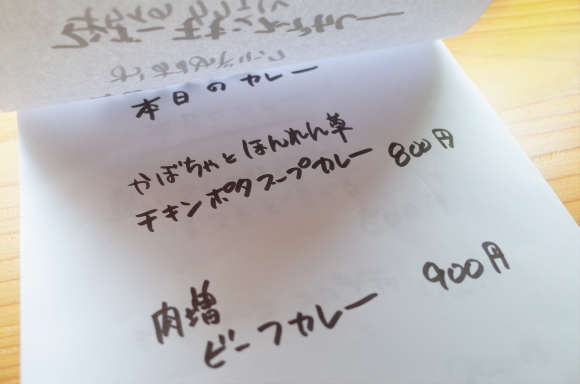 本日のカレー
かぼちゃとほんれん草
チキンポタスープカレー 800円
肉増
ビーフカレー 900円